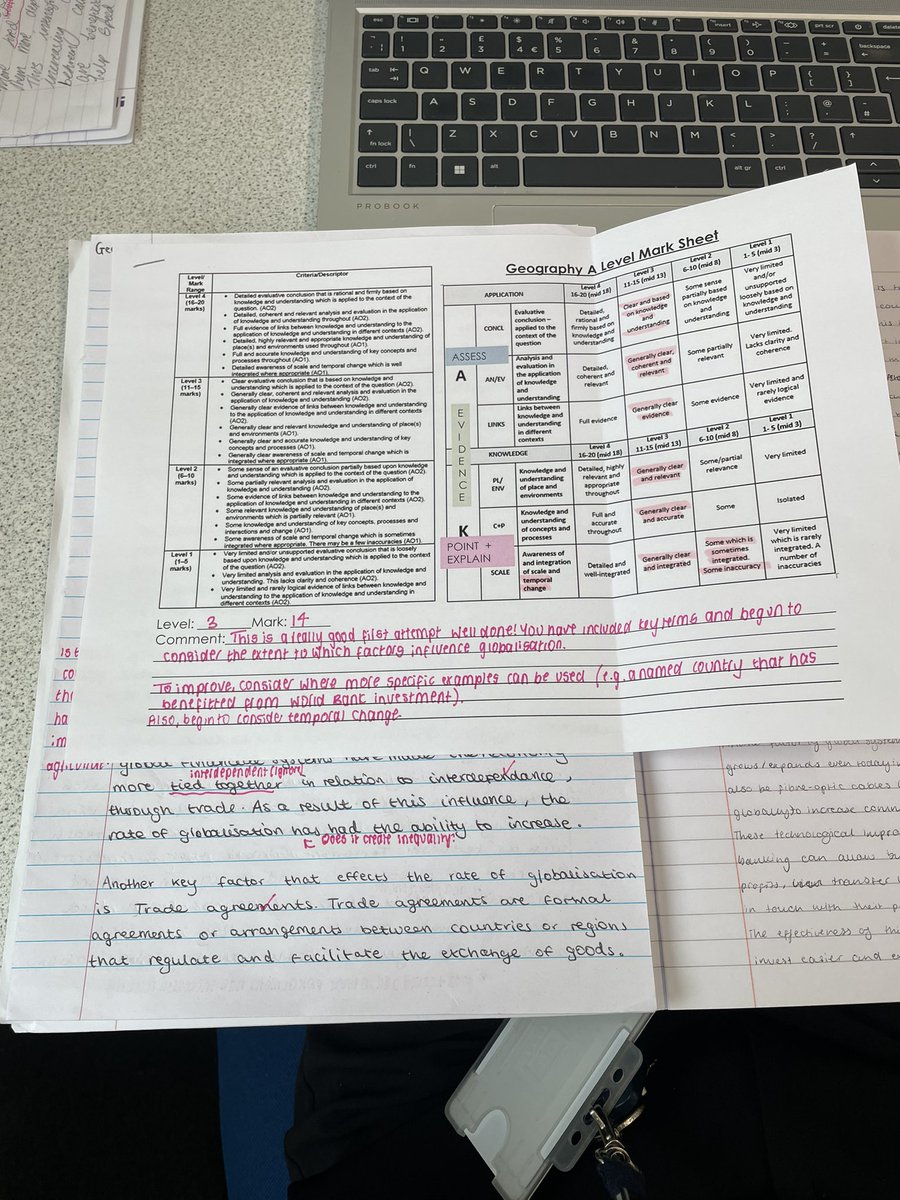 PROBOOK
Geography A Level Mark Sheet
Level/
Mark
Range
Criteria/Descriptor
Level 4
(16–20
marks)
• Detailed evaluative conclusion that is rational and firmly based on
knowledge and understanding which is applied to the context of the
question. (AO2)
• Detailed, coherent and relevant analysis and evaluation in the application
of knowledge and understanding throughout (AO2).
• Full evidence of links between knowledge and understanding to the
application of knowledge and understanding in different contexts (AO2).
• Detailed, highly relevant and appropriate knowledge and understanding of
place(s) and environments used throughout (AO1).
• Full and accurate knowledge and understanding of key concepts and
processes throughout (AO1).
• Detailed awareness of scale and temporal change which is well
integrated where appropriate (AO1).
Level 3
(11–15
marks)
• Clear evaluative conclusion that is based on knowledge and
understanding which is applied to the context of the question (AO2).
• Generally clear, coherent and relevant analysis and evaluation in the
application of knowledge and understanding (AO2).
• Generally clear evidence of links between knowledge and understanding
to the application of knowledge and understanding in different contexts
(AO2).
• Generally clear and relevant knowledge and understanding of place(s)
and environments (AO1).
• Generally clear and accurate knowledge and understanding of key
concepts and processes (AO1).
• Generally clear awareness of scale and temporal change which is
integrated where appropriate (AO1).
Level 2
(6–10
marks)
• Some sense of an evaluative conclusion partially based upon knowledge
and understanding which is applied to the context of the question (AO2).
• Some partially relevant analysis and evaluation in the application of
knowledge and understanding (AO2).
• Some evidence of links between knowledge and understanding to the
application of knowledge and understanding in different contexts (AO2).
• Some relevant knowledge and understanding of place(s) and
environments which is partially relevant (AO1).
• Some knowledge and understanding of key concepts, processes,
interactions and change (AO1).
• Some awareness of scale and temporal change which is sometimes
integrated where appropriate. There may be a few inaccuracies (AO1).
Level 1
(1–5
marks)
• Very limited and/or unsupported evaluative conclusion that is loosely
based upon knowledge and understanding which is applied to the context
of the question (AO2).
• Very limited analysis and evaluation in the application of knowledge and
understanding. This lacks clarity and coherence (AO2).
• Very limited and rarely logical evidence of links between knowledge and
understanding to the application of knowledge and understanding in
different contexts (AO2).
APPLICATION
Level 4
16-20 (mid 18)
Level 3
11-15 (mid 13)
Level 2
6-10 (mid 8)
Level 1
1- 5 (mid 3)
ASSESS
A
EVIDENCE
K
POINT +
EXPLAIN
CONCL
Evaluative
conclusion –
applied to the
context of the
question
Detailed,
rational and
firmly based on
knowledge and
understanding
Clear and based
on knowledge
and
understanding
Some sense
partially based
on knowledge
and
understanding
Very limited
and/or
unsupported
loosely based on
knowledge and
understanding
AN/EV
Analysis and
evaluation in
the application
of knowledge
and
understanding
Detailed,
coherent and
relevant
Generally clear,
coherent and
relevant
Some partially
relevant
Very limited.
Lacks clarity and
coherence
LINKS
Links between
knowledge and
understanding
in different
contexts
Full evidence
Generally clear
evidence
Some evidence
Very limited and
rarely logical
evidence
KNOWLEDGE
Level 4
16-20 (mid 18)
Level 3
11-15 (mid 13)
Level 2
6-10 (mid 8)
Level 1
1-5 (mid 3)
PL/
ENV
Knowledge and
understanding
of place and
environments
Detailed, highly
relevant and
appropriate
throughout
Generally clear
and relevant
Some/partial
relevance
Very limited
C+P
Knowledge and
understanding
of concepts and
processes
Full and
accurate
throughout
Generally clear
and accurate
Some
Isolated
SCALE
Awareness of
and integration
of scale and
temporal
change
Detailed and
well-integrated
Generally clear
and integrated
Some which is
sometimes
integrated.
Some inaccuracy
Very limited
which is rarely
integrated. A
number of
inaccuracies
Level: 3 Mark: 14
Comment: This is a really good first attempt well done! You have included key terms and begun to
consider the extent to which factors influence globalisation.
To improve, consider where more specific examples can be used (e.g. a named country that has
benefitted from World Bank investment).
Also, begin to conside temporal change.
more tied together in relation to interdependance,
through trade. As a result of this influence, the
rate of globalisation has had the ability to increase.
Does it create inequality?
Another key factor that effects the rate of globalisation
is Trade agreements. Trade agreements are formal
agreements or arrangements between countries or regions
that regulate and facilitate the exchange of goods.
grows/expands even today
also be fibre-optic cables
globally to increase
These technological
banking can allow
transfer
in touch with their
The effectiveness of
invest easier and